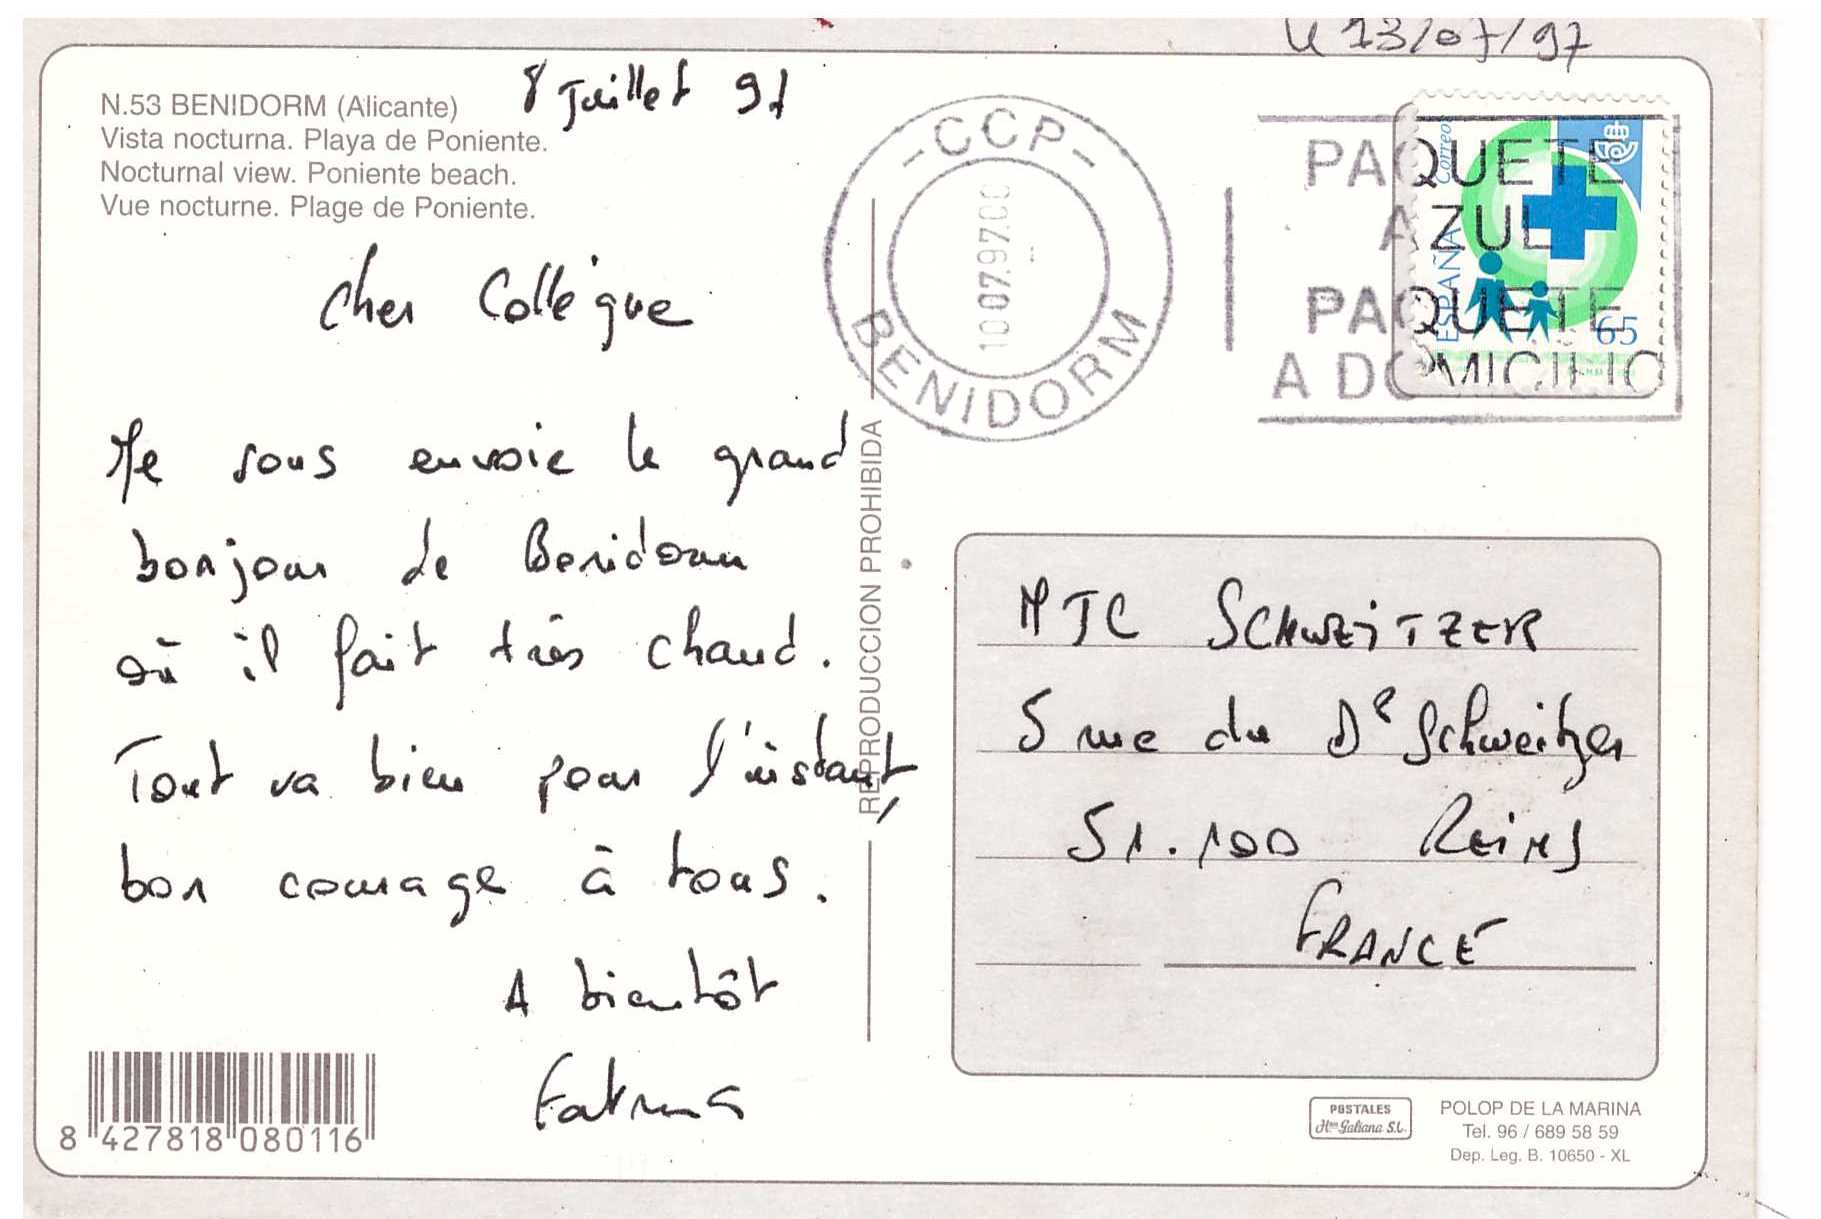 U 13/07/97
8 Juillet 97
N.53 BENIDORM (Alicante)
Vista nocturna. Playa de Poniente.
Nocturnal view. Poniente beach.
Vue nocturne. Plage de Poniente.
Cher Collègue
Je vous envoie le grand
bonjour de Benidorm
où il fait très chaud.
Tout va bien pour l'instant,
bon courage à tous.
A bientôt
Fatima
8 427818 080116
REPRODUCCION PROHIBIDA
-CCP-
10 07.97.00
BENIDORM
PAQUETE
AZUL
PAQUETE
A DOMICILIO
Correo
ESPAÑA
65
MJC SCHWEITZER
5 rue du Dr Schweitzer
51.100 REIMS
FRANCE
POSTALES
Hnos Galiana S.L.
POLOP DE LA MARINA
Tel. 96 / 689 58 59
Dep. Leg. B. 10650 - XL